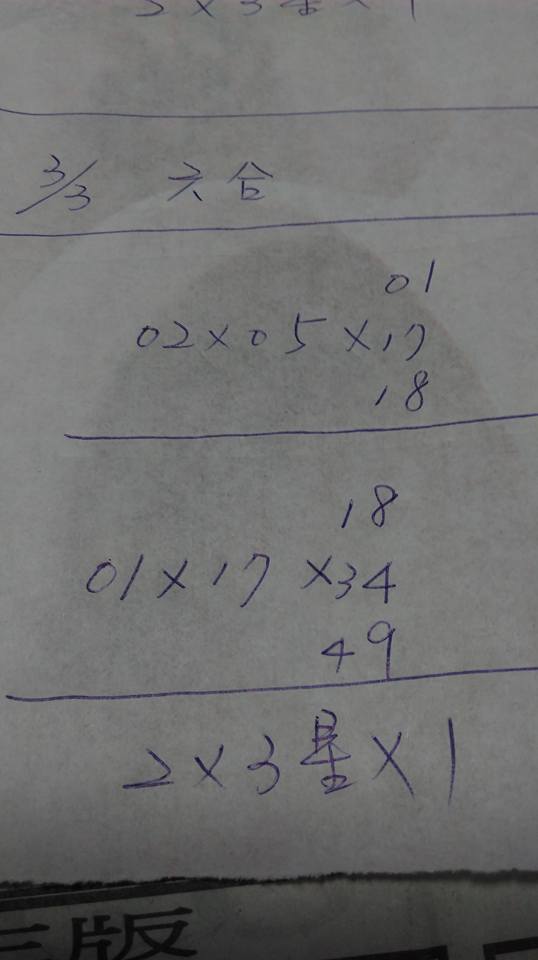 2×3星×1
3/3 六合
01
02×05×17
18
18
01×17×34
49
2×3星×1
三版